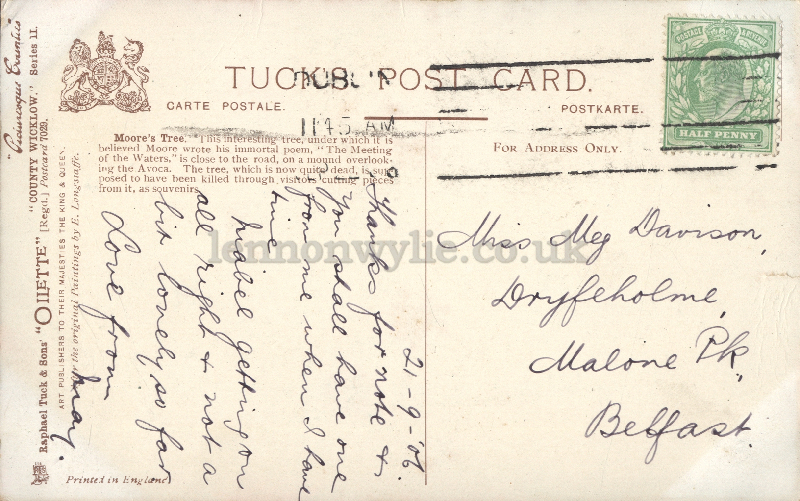 "Picturesque Counties"
Raphael Tuck & Sons' "OILETTE" [Regd.] Postcard 7029.
"COUNTY WICKLOW." Series II.
ART PUBLISHERS TO THEIR MAJESTIES THE KING & QUEEN.
the original Paintings by E. Longstaffe.
Printed in England
TUCK'S POST CARD.
CARTE POSTALE.
POSTKARTE.
DUBLIN
1145 AM
FOR ADDRESS ONLY.
POSTAGE & REVENUE
HALF PENNY
Moore's Tree. This interesting tree, under which it is
believed Moore wrote his immortal poem, "The Meeting
of the Waters," is close to the road, on a mound overlook-
ing the Avoca. The tree, which is now quite dead, is sup-
posed to have been killed through visitors cutting pieces
from it, as souvenirs
21-9-'06
Thanks for note &
you shall have one
from me when I have
time
Mabel getting on
all right & not a
bit lonely so far
Love from
May.
Miss Meg Davison,
Dryfeholme,
Malone Pk,
Belfast.
lennonwylie.co.uk